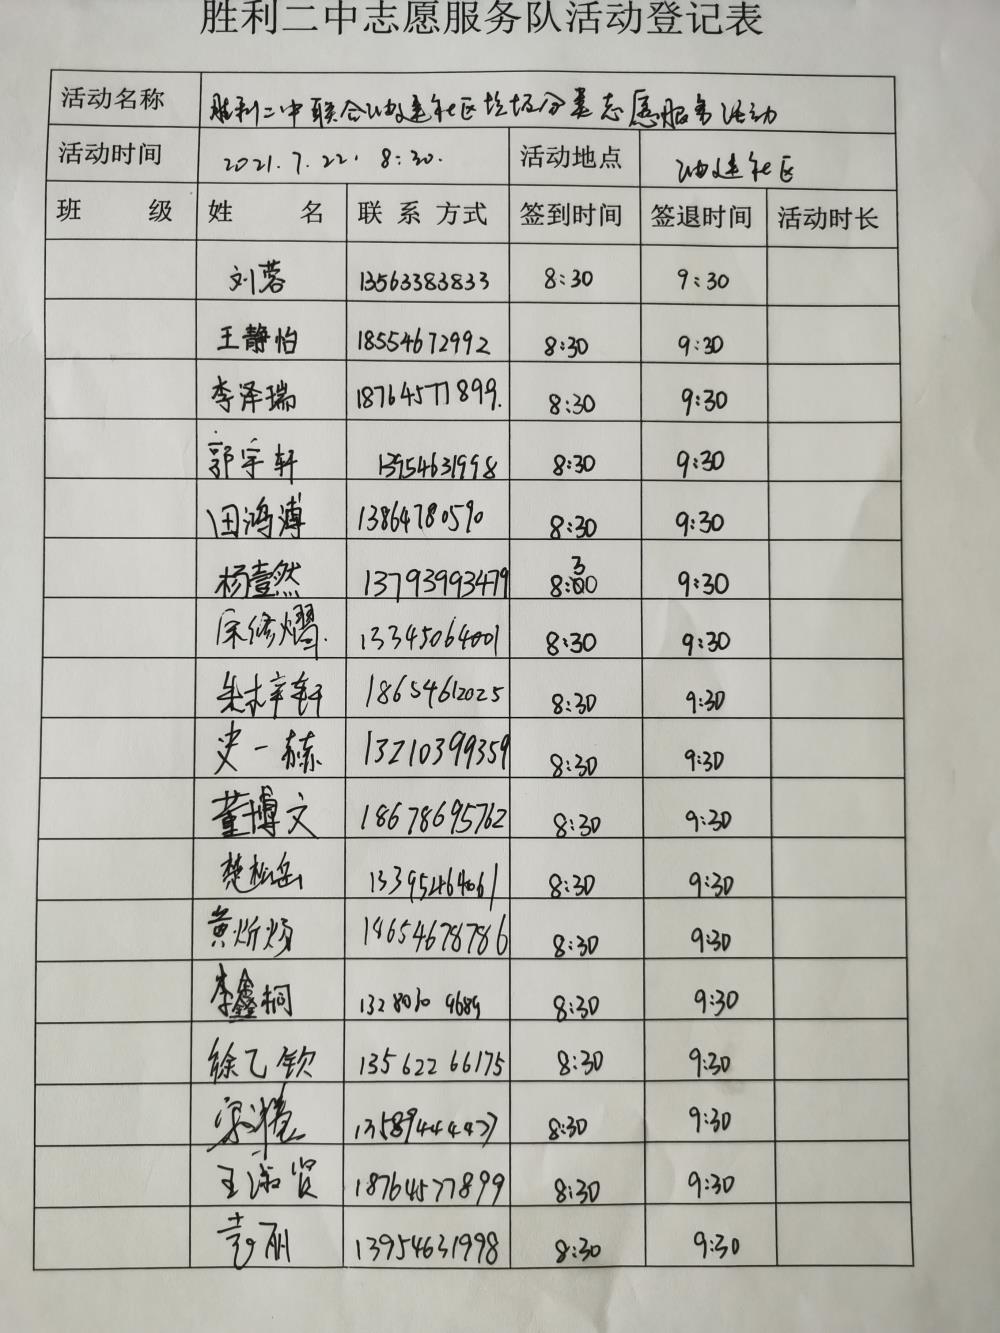 胜利二中志愿服务队活动登记表
活动名称 胜利二中联合油建社区垃圾分类志愿服务活动
活动时间 2021.7.22. 8:30. 活动地点 油建社区
班 级 姓 名 联系方式 签到时间 签退时间 活动时长
刘蓉 13563383833 8:30 9:30
王静怡 18554672992 8:30 9:30
李泽瑞 18764577899. 8:30 9:30
郭宇轩 13954631998 8:30 9:30
田鸿溥 13864780590 8:30 9:30
杨壹然 13793993479 8:30 9:30
宋修熠. 13345064001 8:30 9:30
朱梓轩 18654612025 8:30 9:30
史一赫 13210399359 8:30 9:30
董博文 18678695762 8:30 9:30
楚松岳 13395464061 8:30 9:30
黄炘炀 18654678786 8:30 9:30
李鑫桐 8:30 9:30
徐乙钦 13562266175 8:30 9:30
8:30 9:30
王淑贤 18764577899 8:30 9:30
袁丽 13954631998 8:30 9:30